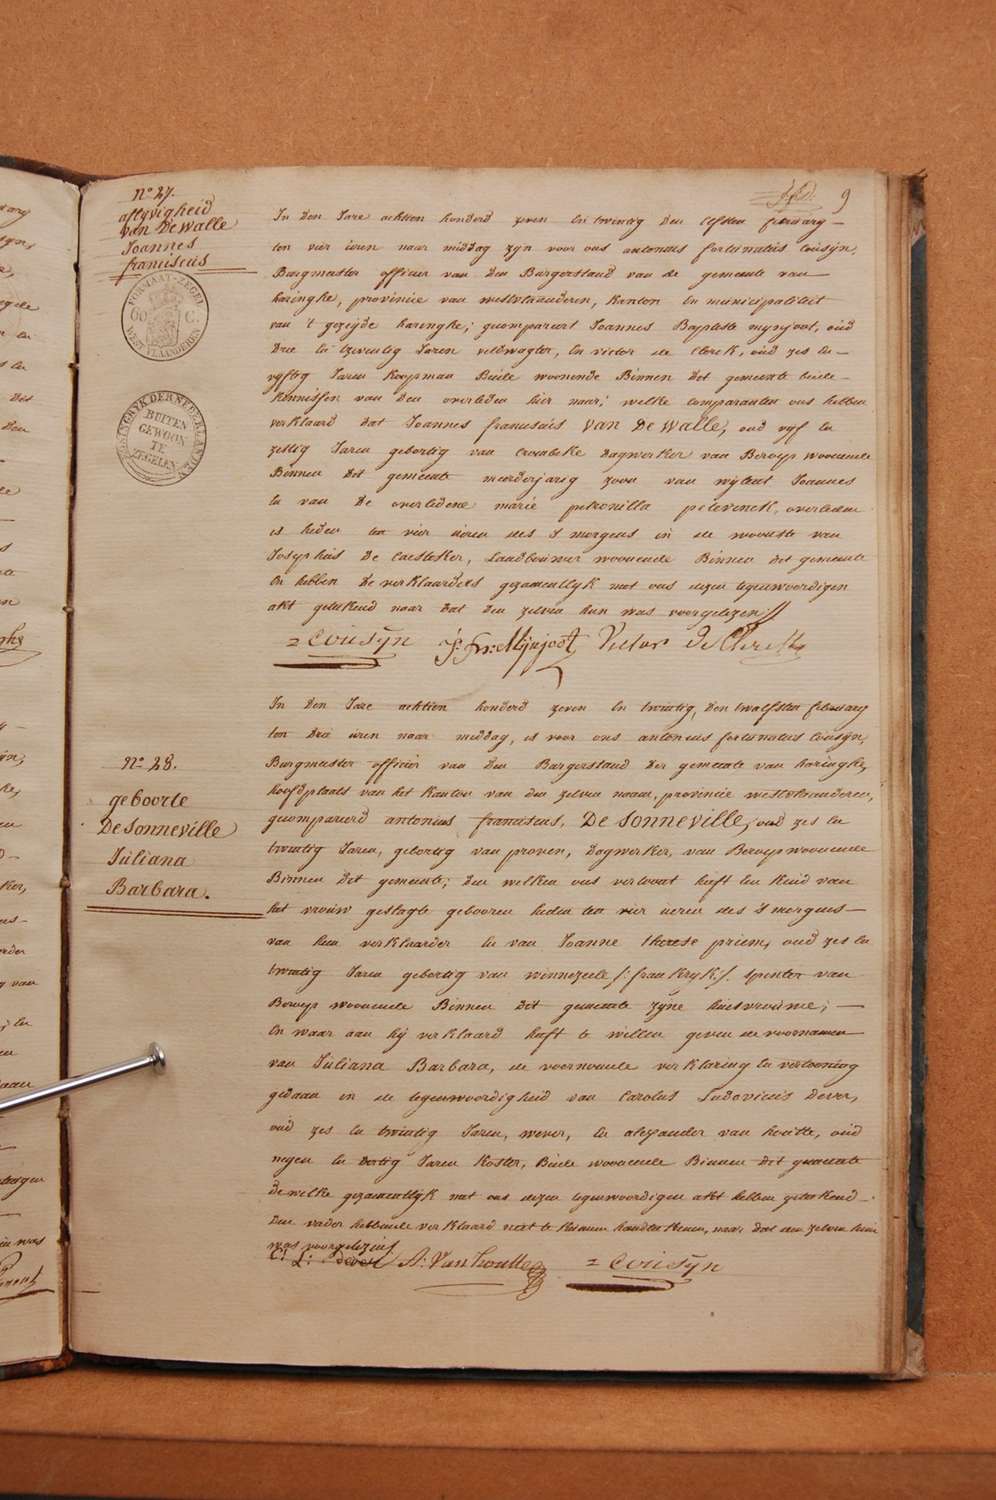 9
N° 27.
aflyvigheid
van De Walle
Joannes
franciscus
FORMAAT-ZEGEL
60 C.
WEST VLAANDEREN
KONINGRYK DER NEDERLANDEN
BUITEN
GEWOON
TE
ZEGELEN
In den Jare achtien honderd zeven en twintig den elfsten february
ten vier uren naar middag zyn voor ons antonius fortunatus Cousyn,
Burgmeester officier van den Burgerstand van de gemeente van
haringhe, provincie van westvlaanderen, kanton en municipaliteit
van 't gezeyde haringhe; gecompareert Joannes Baptiste mynjoot, oud
Drie en tzeventig Jaren veldwagter, en victor de Clerck, oud zes en
vyftig Jaren koopman Beide woonende Binnen det gemeente beide
kennissen van den overleden hier naar; welke comparanten ons hebben
verklaard dat Joannes franciscus Van De Walle, oud vyf en
zestig Jaren gebortig van Crombeke dagwerker van Beroep woonende
Binnen det gemeente meerderjarig zoon van wylent Joannes
en van de overledene marie petronilla pelevinck, overleden
is heden ten vier uren des s'morgens in de woonste van
Josephus De Caesteker, Landbouwer woonende Binnen det gemeente
En hebben de verklaarders gezamentlyk met ons dezen tegenwoordigen
akt geteekend naar dat den zelven hun was voorgelezen //
= Cousyn J: Fr: Mynjoot Victor De Clerck
N° 28.
geboorte
De Sonneville
Juliana
Barbara.
In Den Jare achtien honderd zeven en twintig, den twalfsten february
ten drie uren naar middag, is voor ons antonius fortunatus Cousyn,
Burgmeester officier van den Burgerstand der gemeente van haringhe,
hoofdplaats van het kanton van den zelven naam, provincie westvlaanderen,
gecompareerd antonius franciscus, De Sonneville, oud zes en
twintig Jaren, gebortig van proven, Dagwerker, van Beroep woonende
Binnen det gemeente; den welken ons vertoont heeft een kind van
het vrouw geslagte geboren heden ten vier uren des s'morgens
van hem verklaarder en van Joanne therese priem, oud zes en
twintig Jaren gebortig van winnezeele /: frankryk :/ spinster van
Beroep woonende Binnen det gemeente zyne huisvrouwe;
En waar aan hy verklaard heeft te willen geven de voornamen
van Juliana Barbara, de voornoemde verklaring en vertooning
gedaan in de tegenwoordigheid van Carolus Ludovicus Dever,
oud zes en twintig Jaren, wever, en alexander van houtte, oud
negen en dertig Jaren koster, Beide woonende Binnen det gemeente
dewelke gezamentlyk met ons dezen tegenwoordigen akt hebben geteekend
Den vader hebbende verklaard niet te kunnen handteekenen, naar dat den zelven hun
was voorgelezen /
C: L: Dever A: Van houtte = Cousyn